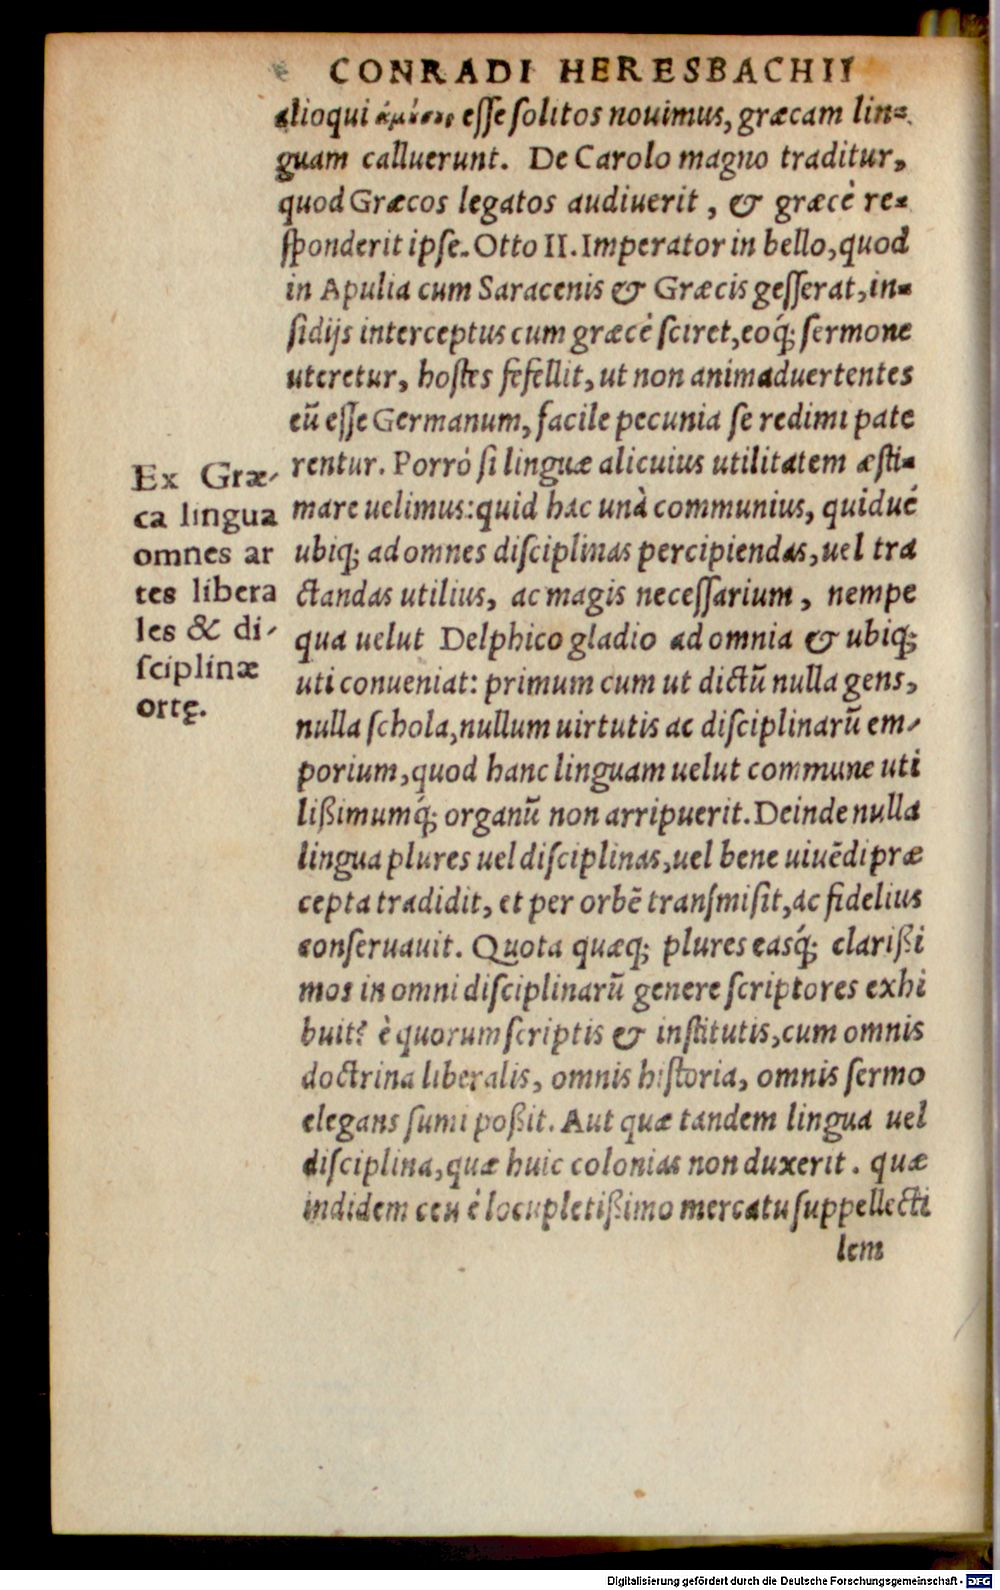 CONRADI HERESBACHII
alioqui esse solitos nouimus, græcam lin-
guam calluerunt. De Carolo magno traditur,
quod Græcos legatos audiuerit, & græcè re-
sponderit ipse. Otto II. Imperator in bello, quod
in Apulia cum Saracenis & Græcis gesserat, in-
sidijs interceptus cum græcè sciret, eoq́; sermone
uteretur, hostes fefellit, ut non animaduertentes
eū esse Germanum, facile pecunia se redimi pate
rentur. Porrò si linguæ alicuius utilitatem æsti-
mare uelimus: quid hac unà communius, quidué
ubiq; ad omnes disciplinas percipiendas, uel tra
ctandas utilius, ac magis necessarium, nempe
qua uelut Delphico gladio ad omnia & ubiq;
uti conueniat: primum cum ut dictū nulla gens,
nulla schola, nullum uirtutis ac disciplinarū em-
porium, quod hanc linguam uelut commune uti
lißimumq́; organū non arripuerit. Deinde nulla
lingua plures uel disciplinas, uel bene uiuēdi præ
cepta tradidit, et per orbē transmisit, ac fidelius
conseruauit. Quota quæq; plures easq́; clarißi
mos in omni disciplinarū genere scriptores exhi
buit? è quorum scriptis & institutis, cum omnis
doctrina liberalis, omnis historia, omnis sermo
elegans sumi poßit. Aut quæ tandem lingua uel
disciplina, quæ huic colonias non duxerit. quæ
indidem ceu è locupletißimo mercatu suppellecti
lem
Ex Græ-
ca lingua
omnes ar
tes libera
les & di-
sciplinæ
ortę.
Digitalisierung gefördert durch die Deutsche Forschungsgemeinschaft - DFG